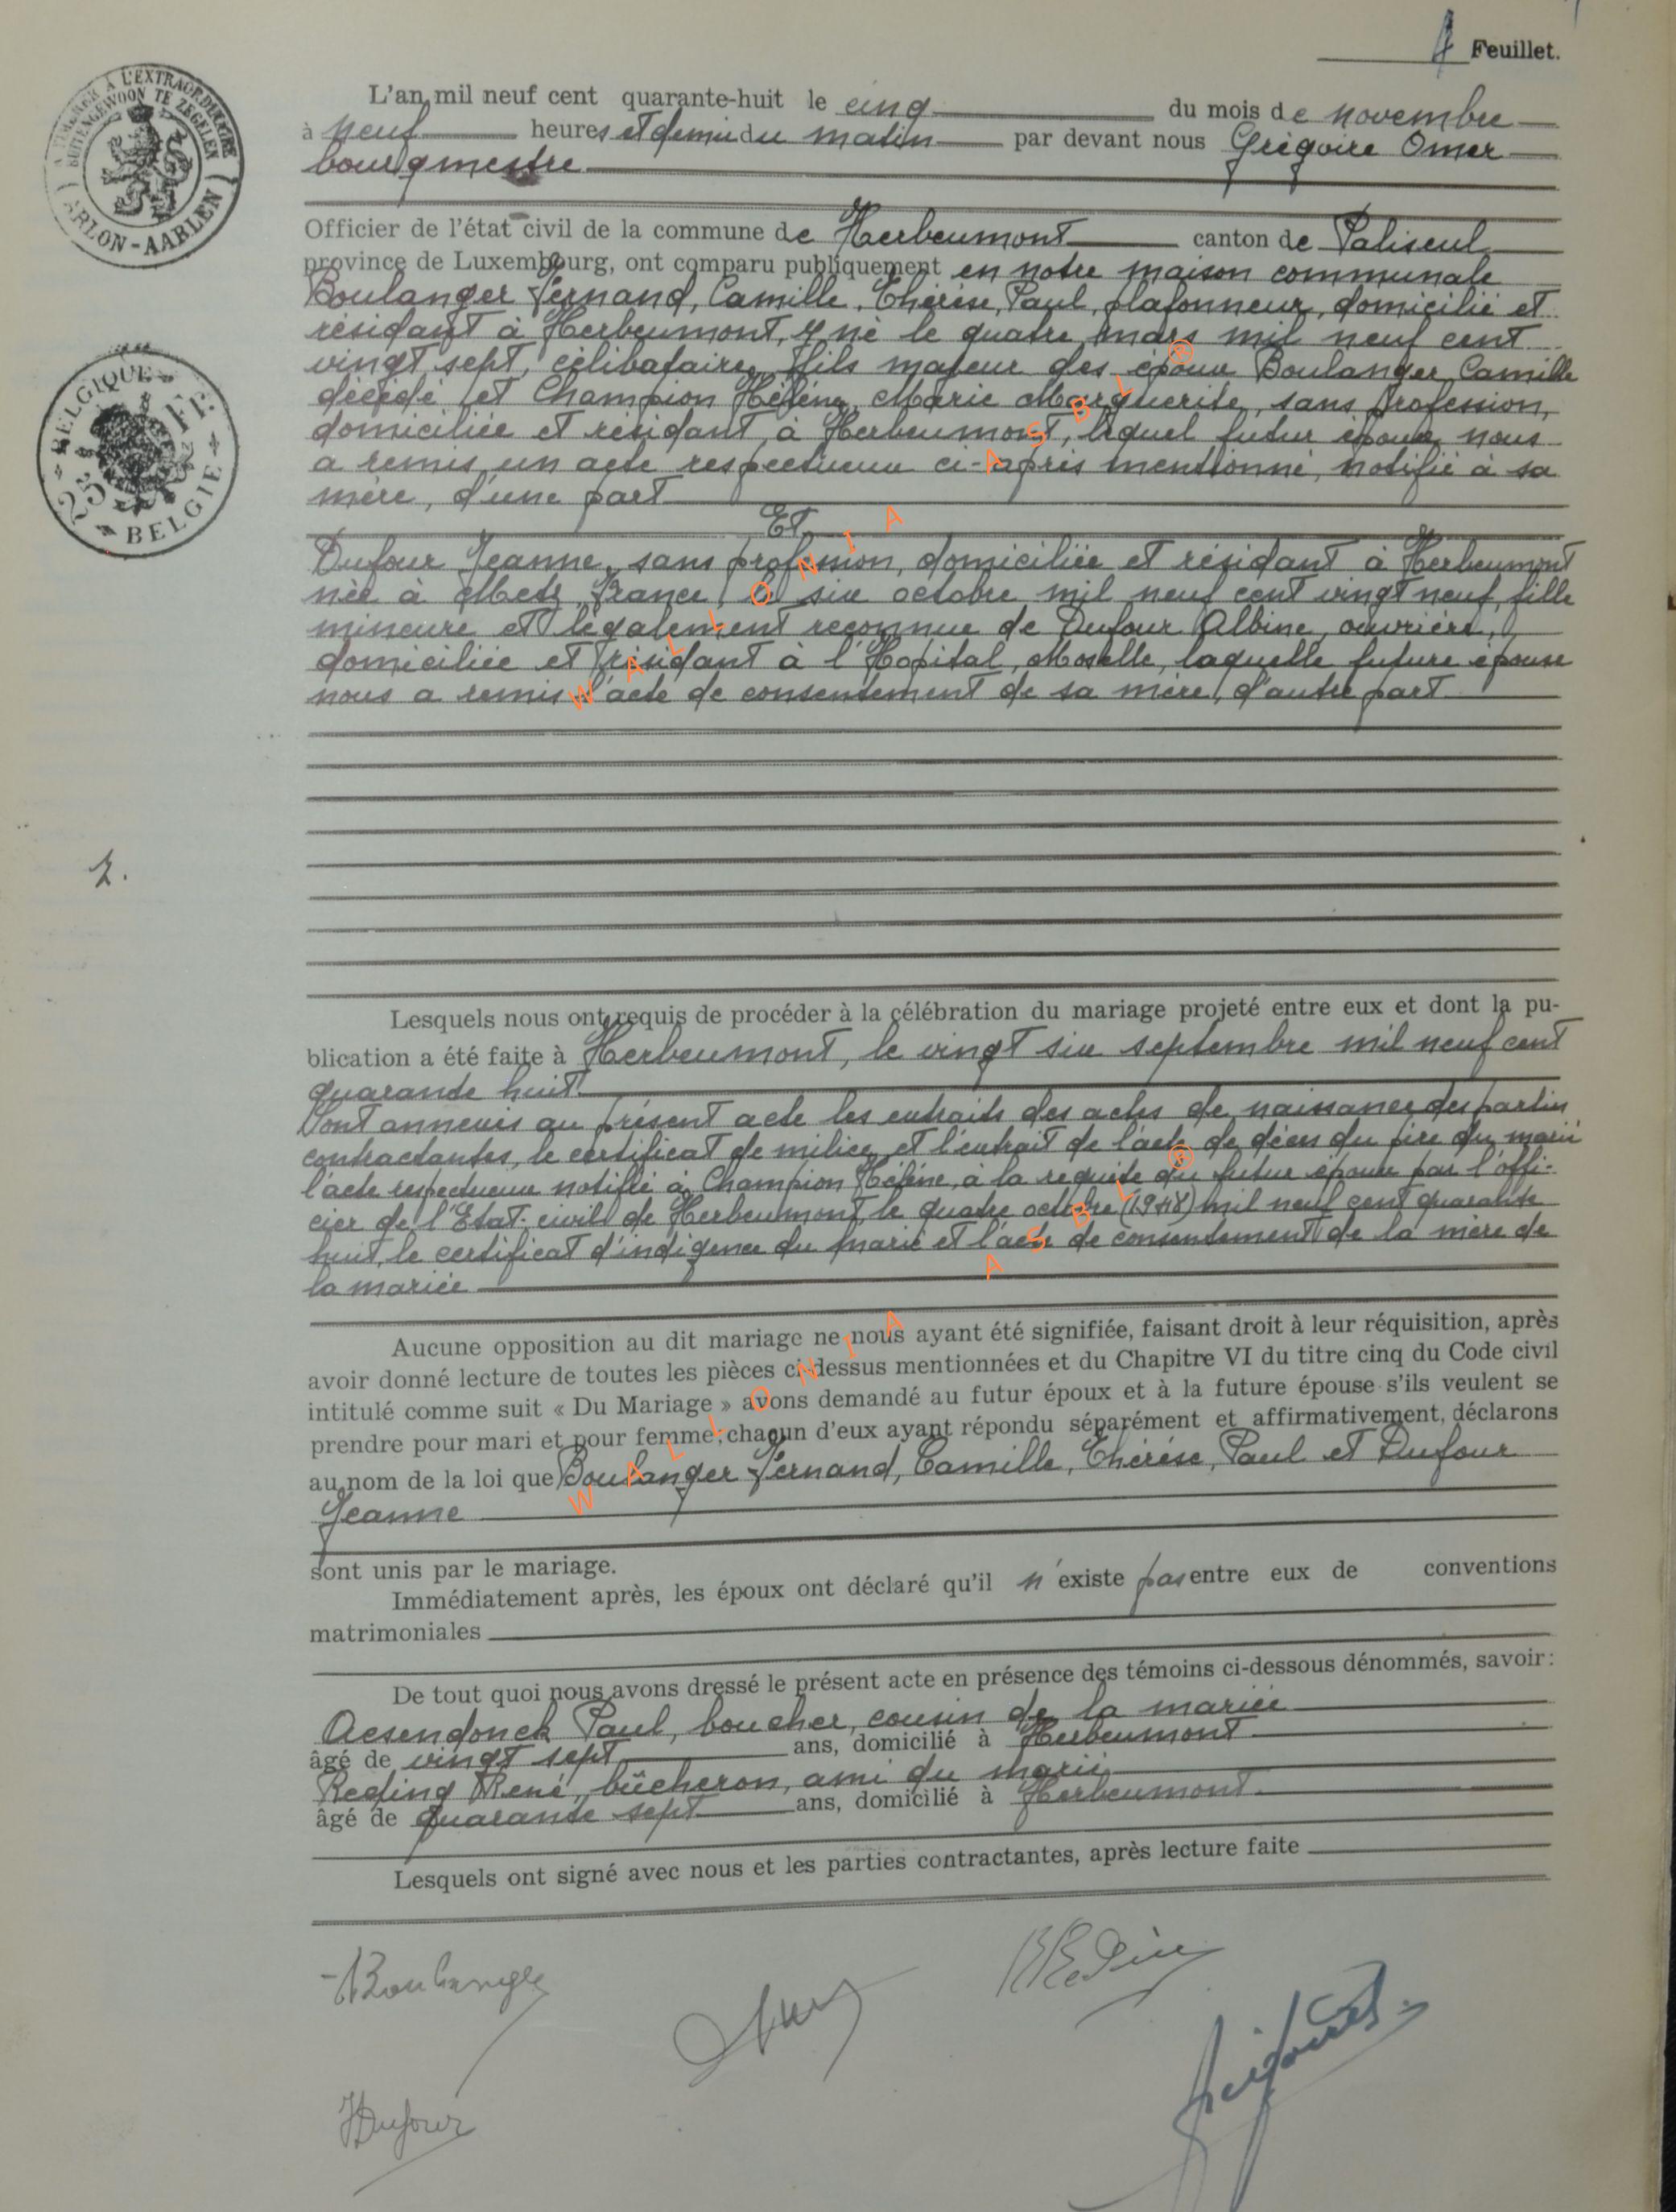 4 Feuillet.
L'an mil neuf cent quarante-huit le cinq du mois de novembre
à neuf heures et demie du matin par devant nous Grégoire Omer
bourgmestre
Officier de l'état civil de la commune de Herbeumont canton de Paliseul
province de Luxembourg, ont comparu publiquement en notre maison communale
Boulanger Fernand, Camille, Thérèse, Paul, plafonneur, domicilié et
résidant à Herbeumont, y né le quatre mars mil neuf cent
vingt sept, célibataire, fils majeur des époux Boulanger Camille
décédé et Champion Hélène, Marie Marguerite, sans profession,
domiciliée et résidant à Herbeumont, lequel futur époux nous
a remis un acte respectueux ci-après mentionné, notifié à sa
mère, d'une part
Et
Dufour Jeanne, sans profession, domiciliée et résidant à Herbeumont
née à Metz, France, le six octobre mil neuf cent vingt neuf, fille
mineure et légalement reconnue de Dufour Albine, ouvrière,
domiciliée et résidant à l'Hopital, Moselle, laquelle future épouse
nous a remis l'acte de consentement de sa mère, d'autre part
Lesquels nous ont requis de procéder à la célébration du mariage projeté entre eux et dont la pu-
blication a été faite à Herbeumont, le vingt six septembre mil neuf cent
quarante huit.
Sont annexés au présent acte les extraits des actes de naissance des parties
contractantes, le certificat de milice, et l'extrait de l'acte de décès du père du marié
l'acte respectueux notifié à Champion Hélène, à la requête du futur époux par l'offi-
cier de l'Etat-civil de Herbeumont, le quatre octobre (1948) mil neuf cent quarante
huit, le certificat d'indigence du marié et l'acte de consentement de la mère de
la mariée
Aucune opposition au dit mariage ne nous ayant été signifiée, faisant droit à leur réquisition, après
avoir donné lecture de toutes les pièces ci-dessus mentionnées et du Chapitre VI du titre cinq du Code civil
intitulé comme suit « Du Mariage » avons demandé au futur époux et à la future épouse s'ils veulent se
prendre pour mari et pour femme, chacun d'eux ayant répondu séparément et affirmativement, déclarons
au nom de la loi que Boulanger Fernand, Camille, Thérèse, Paul et Dufour
Jeanne
sont unis par le mariage.
Immédiatement après, les époux ont déclaré qu'il n'existe pas entre eux de conventions
matrimoniales
De tout quoi nous avons dressé le présent acte en présence des témoins ci-dessous dénommés, savoir :
Aesendonck Paul, boucher, cousin de la mariée
âgé de vingt sept ans, domicilié à Herbeumont
Reding René, bûcheron, ami du marié
âgé de quarante sept ans, domicilié à Herbeumont
Lesquels ont signé avec nous et les parties contractantes, après lecture faite
Boulanger
RReding
JDufour
Grégoire
A TIMBRER A L'EXTRAORDINAIRE
BUITENGEWOON TE ZEGELEN
ARLON-AARLEN
BELGIQUE
25 Fr.
BELGIE
2.
WALLONIA ASBL ®
WALLONIA ASBL ®